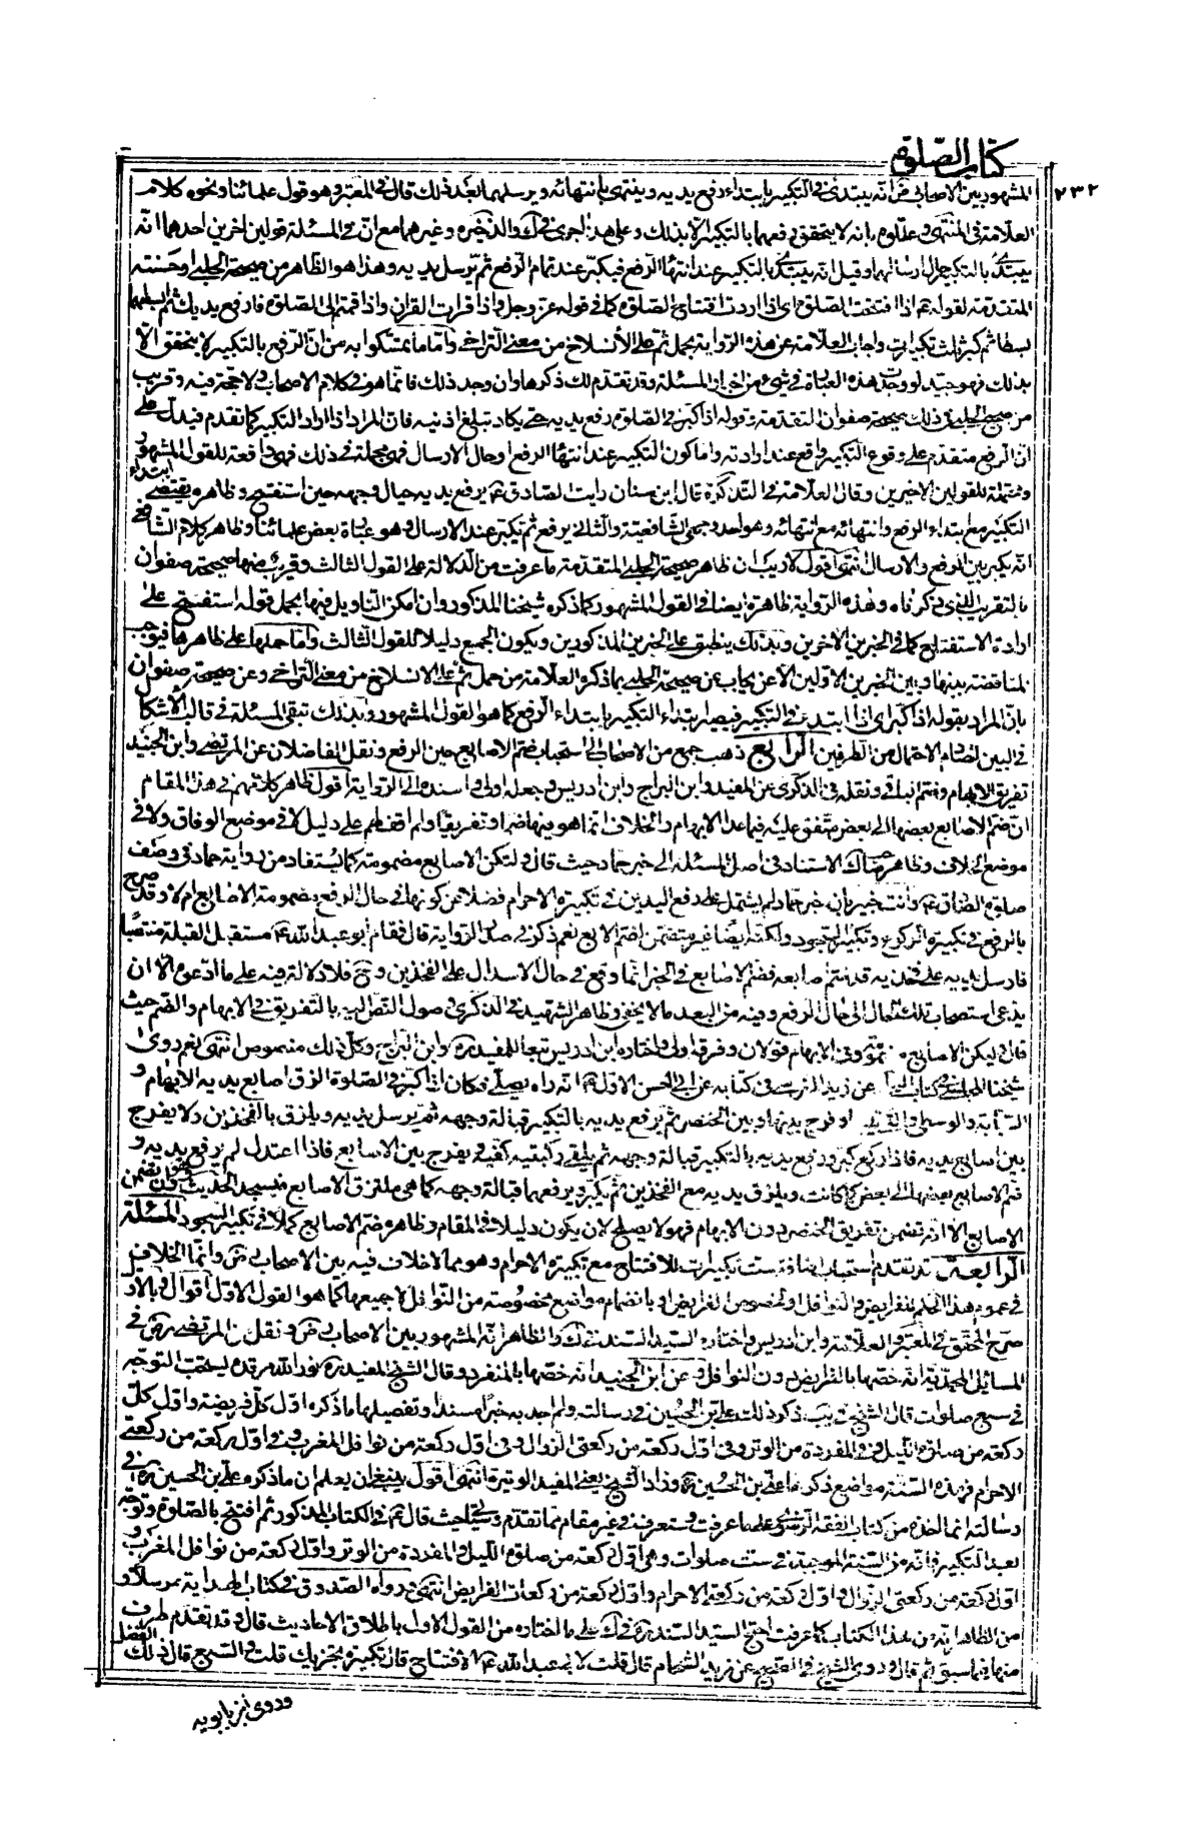 كتاب الصلوة
٢٣٢
المشهور بين الاصحاب رض انه يبتدئ في التكبير بابتداء رفع يديه وينتهى بانتهائه ويرسلهما بعد ذلك قال في المعتبر وهو قول علمائنا ونحوه كلام
العلامة في المنتهى وعللوه بانه لا يتحقق رفعهما بالتكبير الا بذلك وعلى هذا جرى في ك والذخيرة وغيرهما مع ان في المسئلة قولين اخرين احدهما انه
يبتدئ بالتكبير حال ارسالهما وقيل انه يبتدئ بالتكبير عند انتهاء الرفع فيكبر عند تمام الرفع ثم يرسل يديه وهذا هو الظاهر من صحيحة الحلبي او حسنته
المتقدمة لقوله ع اذا افتتحت الصلوة اى اذا اردت افتتاح الصلوة كما في قوله عز وجل واذا قرات القران واذا قمتم الى الصلوة فارفع يديك ثم ابسطهما
بسطا ثم كبر ثلث تكبيرات واجاب العلامة عن هذه الرواية بحمل ثم على الانسلاخ من معنى التراخى واما ما تمسكوا به من ان الرفع بالتكبير لا يتحقق الا
بذلك فهو جيد لو وجدت هذه العبارة في شئ من اخبار المسئلة وقد تقدم لك ذكرها وان وجد ذلك فانما هو في كلام الاصحاب ولا حجة فيه وقريب
من صحيح الحلبى في ذلك صحيحة صفوان المتقدمة وقوله اذا كبر في الصلوة رفع يديه حتى يكاد تبلغ اذنيه فان المراد اذا اراد التكبير كما تقدم فيدل على
ان الرفع متقدم على وقوع التكبير واقع عند ارادته واما كون التكبير عند انتهاء الرفع او حال الارسال فهى مجملة في ذلك فهى دافعة للقول المشهور
ومحتملة للقولين الاخيرين وقال العلامة في التذكرة قال ابن سنان رايت الصادق ع يرفع يديه حيال وجهه حين استفتح وظاهره يقتضى ابتداء
التكبير مع ابتداء الرفع وانتهائه مع انتهائه وهو احد وجهى الشافعية والثانى يرفع ثم يكبر عند الارسال وهو عبارة بعض علمائنا وظاهر كلام الشافعى
انه يكبر بين الرفع والارسال انتهى اقول لا ريب ان ظاهر صحيحة الحلبى المتقدمة ما عرفت من الدلالة على القول الثالث وقريب منها صحيحة صفوان
بالتقريب الذى ذكرناه وهذه الرواية ظاهرة ايضا في القول المشهور كما ذكره شيخنا المذكور وان امكن التاويل فيها بحمل قوله استفتح على
ارادة الاستفتاح كما في الخبرين الاخرين وبذلك ينطبق على الخبرين المذكورين ويكون الجميع دليلا للقول الثالث واما حملها على ظاهرها فيوجب
المناقضة بينها وبين الخبرين الاولين الا ان يجاب عن صحيحة الحلبى بما ذكره العلامة من حمل ثم على الانسلاخ من معنى التراخى وعن صحيحة صفوان
بان المراد بقوله اذا كبر اى اذا ابتدئ في التكبير فيصير ابتداء التكبير بابتداء الرفع كما هو القول المشهور وبذلك تبقى المسئلة في قالب الاشكال
في البين لقيام الاحتمال من الطرفين الرابع ذهب جمع من الاصحاب الى استحباب ضم الاصابع حين الرفع ونقل الفاضلان عن المرتضى وابن الجنيد
تفريق الابهام وضم الباقى ونقله في الذكرى عن المفيد وابن البراج وابن ادريس وجعله اولى واسنده الى الرواية اقول ظاهر كلامهم في هذا المقام
ان ضم الاصابع بعضها الى بعض متفق عليه فيما عدا الابهام والخلاف انما هو فيها ضما وتفريقا ولم اقف لهم على دليل لا في موضع الوفاق ولا في
موضع الخلاف وظاهر صاحب ك الاستناد في اصل المسئلة الى خبر حماد حيث قال ولتكن الاصابع مضمومة كما يستفاد من رواية حماد في وصف
صلوة الصادق ع وانت خبير بان خبر حماد لم يشتمل على رفع اليدين في تكبيرة الاحرام فضلا عن كونها في حال الرفع مضمومة الاصابع ام لا وقد صرح
بالرفع في تكبيرة الركوع وتكبير السجود ولكنه ايضا غير متضمن لضم الاصابع نعم ذكر في صدر الرواية قال فقام ابو عبد الله ع مستقبل القبلة منتصبا
فارسل يديه على فخذيه قد ضم اصابعه فضم الاصابع في الخبر انما وقع في حال الاسدال على الفخذين وح فلا دلالة فيه على ما ادعوه الا ان
يدعى استصحاب تلك الحال الى حال الرفع وفيه من البعد ما لا يخفى وظاهر الشهيد في الذكرى وصول النص اليه بالتفريق في الابهام والضم حيث
قال وليكن الاصابع مضمومة وفي الابهام قولان وفرقه اولى واختاره ابن ادريس تبعا للمفيد ره وابن البراج وكل ذلك منصوص انتهى نعم روى
شيخنا المجلسى في كتاب البحار عن زيد النرسى في كتابه عن ابى الحسن الاول ع انه راه يصلى فكان اذا كبر في الصلوة الزق اصابع يديه الابهام و
السبابة والوسطى والتى تليها وفرج بينها وبين الخنصر ثم يرفع يديه بالتكبير قبالة وجهه ثم يرسل يديه ويلزق بالفخذين ولا يفرج
بين اصابع يديه فاذا ركع كبر ورفع يديه بالتكبير قبالة وجهه ثم يلقم ركبتيه كفيه ويفرج بين الاصابع فاذا اعتدل لم يرفع يديه و
ضم الاصابع بعضها الى بعض كما كانت ويلزق يديه مع الفخذين ثم يكبر ويرفعهما قبالة وجهه كما هى ملتزق الاصابع فيسجد الحديث وهو وان تضمن ضم
الاصابع الا انه تضمن تفريق الخنصر دون الابهام فهو لا يصلح لان يكون دليلا في المقام وظاهره ضم الاصابع كملا في تكبير السجود المسئلة
الرابعة قد تقدم استحباب اضافة ست تكبيرات للافتتاح مع تكبيرة الاحرام وهو مما لا خلاف فيه بين الاصحاب رض وانما الخلاف
في عموم هذا الحكم للفرايض والنوافل او لخصوص الفرايض او بانضمام مواضع مخصوصة من النوافل لا جميعها كما هو القول الاول اقوال وبالاول
صرح المحقق في المعتبر والعلامة وابن ادريس واختاره السيد السند في ك والظاهر انه المشهور بين الاصحاب رض ونقل عن المرتضى رض في
المسائل المحمدية انه خصها بالفرايض دون النوافل وعن ابن الجنيد انه خصها بالمنفرد وقال الشيخ المفيد ره نور الله مرقده يستحب التوجه
في سبع صلوات قال الشيخ في يب ذكر ذلك على بن الحسين في رسالته ولم اجد به خبرا مسندا وتفصيلها ما ذكره اول كل فريضة واول كل
ركعة من صلوة الليل وفي المفردة من الوتر وفى اول ركعة من ركعتى الزوال وفى اول ركعة من نوافل المغرب وفي اول ركعة من ركعتى
الاحرام فهذه الستة مواضع ذكرها على بن الحسين ره وزاد الشيخ يعنى المفيد الوتيرة انتهى اقول ينبغى ان يعلم ان ما ذكره على بن الحسين ره في
رسالته انما اخذه من كتاب الفقه الرضوى على ما عرفت وستعرف في غير مقام مما تقدم وياتى حيث قال ع في الكتاب المذكور ثم افتتح بالصلوة وتوجه
بعد التكبير فانه من السنة الموجبة في ست صلوات وهى اول ركعة من صلوة الليل والمفردة من الوتر واول ركعة من نوافل المغرب و
اول ركعة من ركعتى الزوال واول ركعة من ركعتى الاحرام واول ركعة من ركعات الفرايض انتهى ورواه الصدوق في كتاب الهداية مرسلا و
من الظاهر انه من هذا الكتاب كما عرفت احتج السيد السند ره في ك على ما اختاره من القول الاول باطلاق الاحاديث قال وقد تقدم طرف
منها فيما سبق ثم قال وروى الشيخ في الصحيح عن زيد الشحام قال قلت لابى عبد الله ع الافتتاح قال تكبيرة تجزيك قلت فالسبع قال ذلك الفضل
وروى ابن بابويه